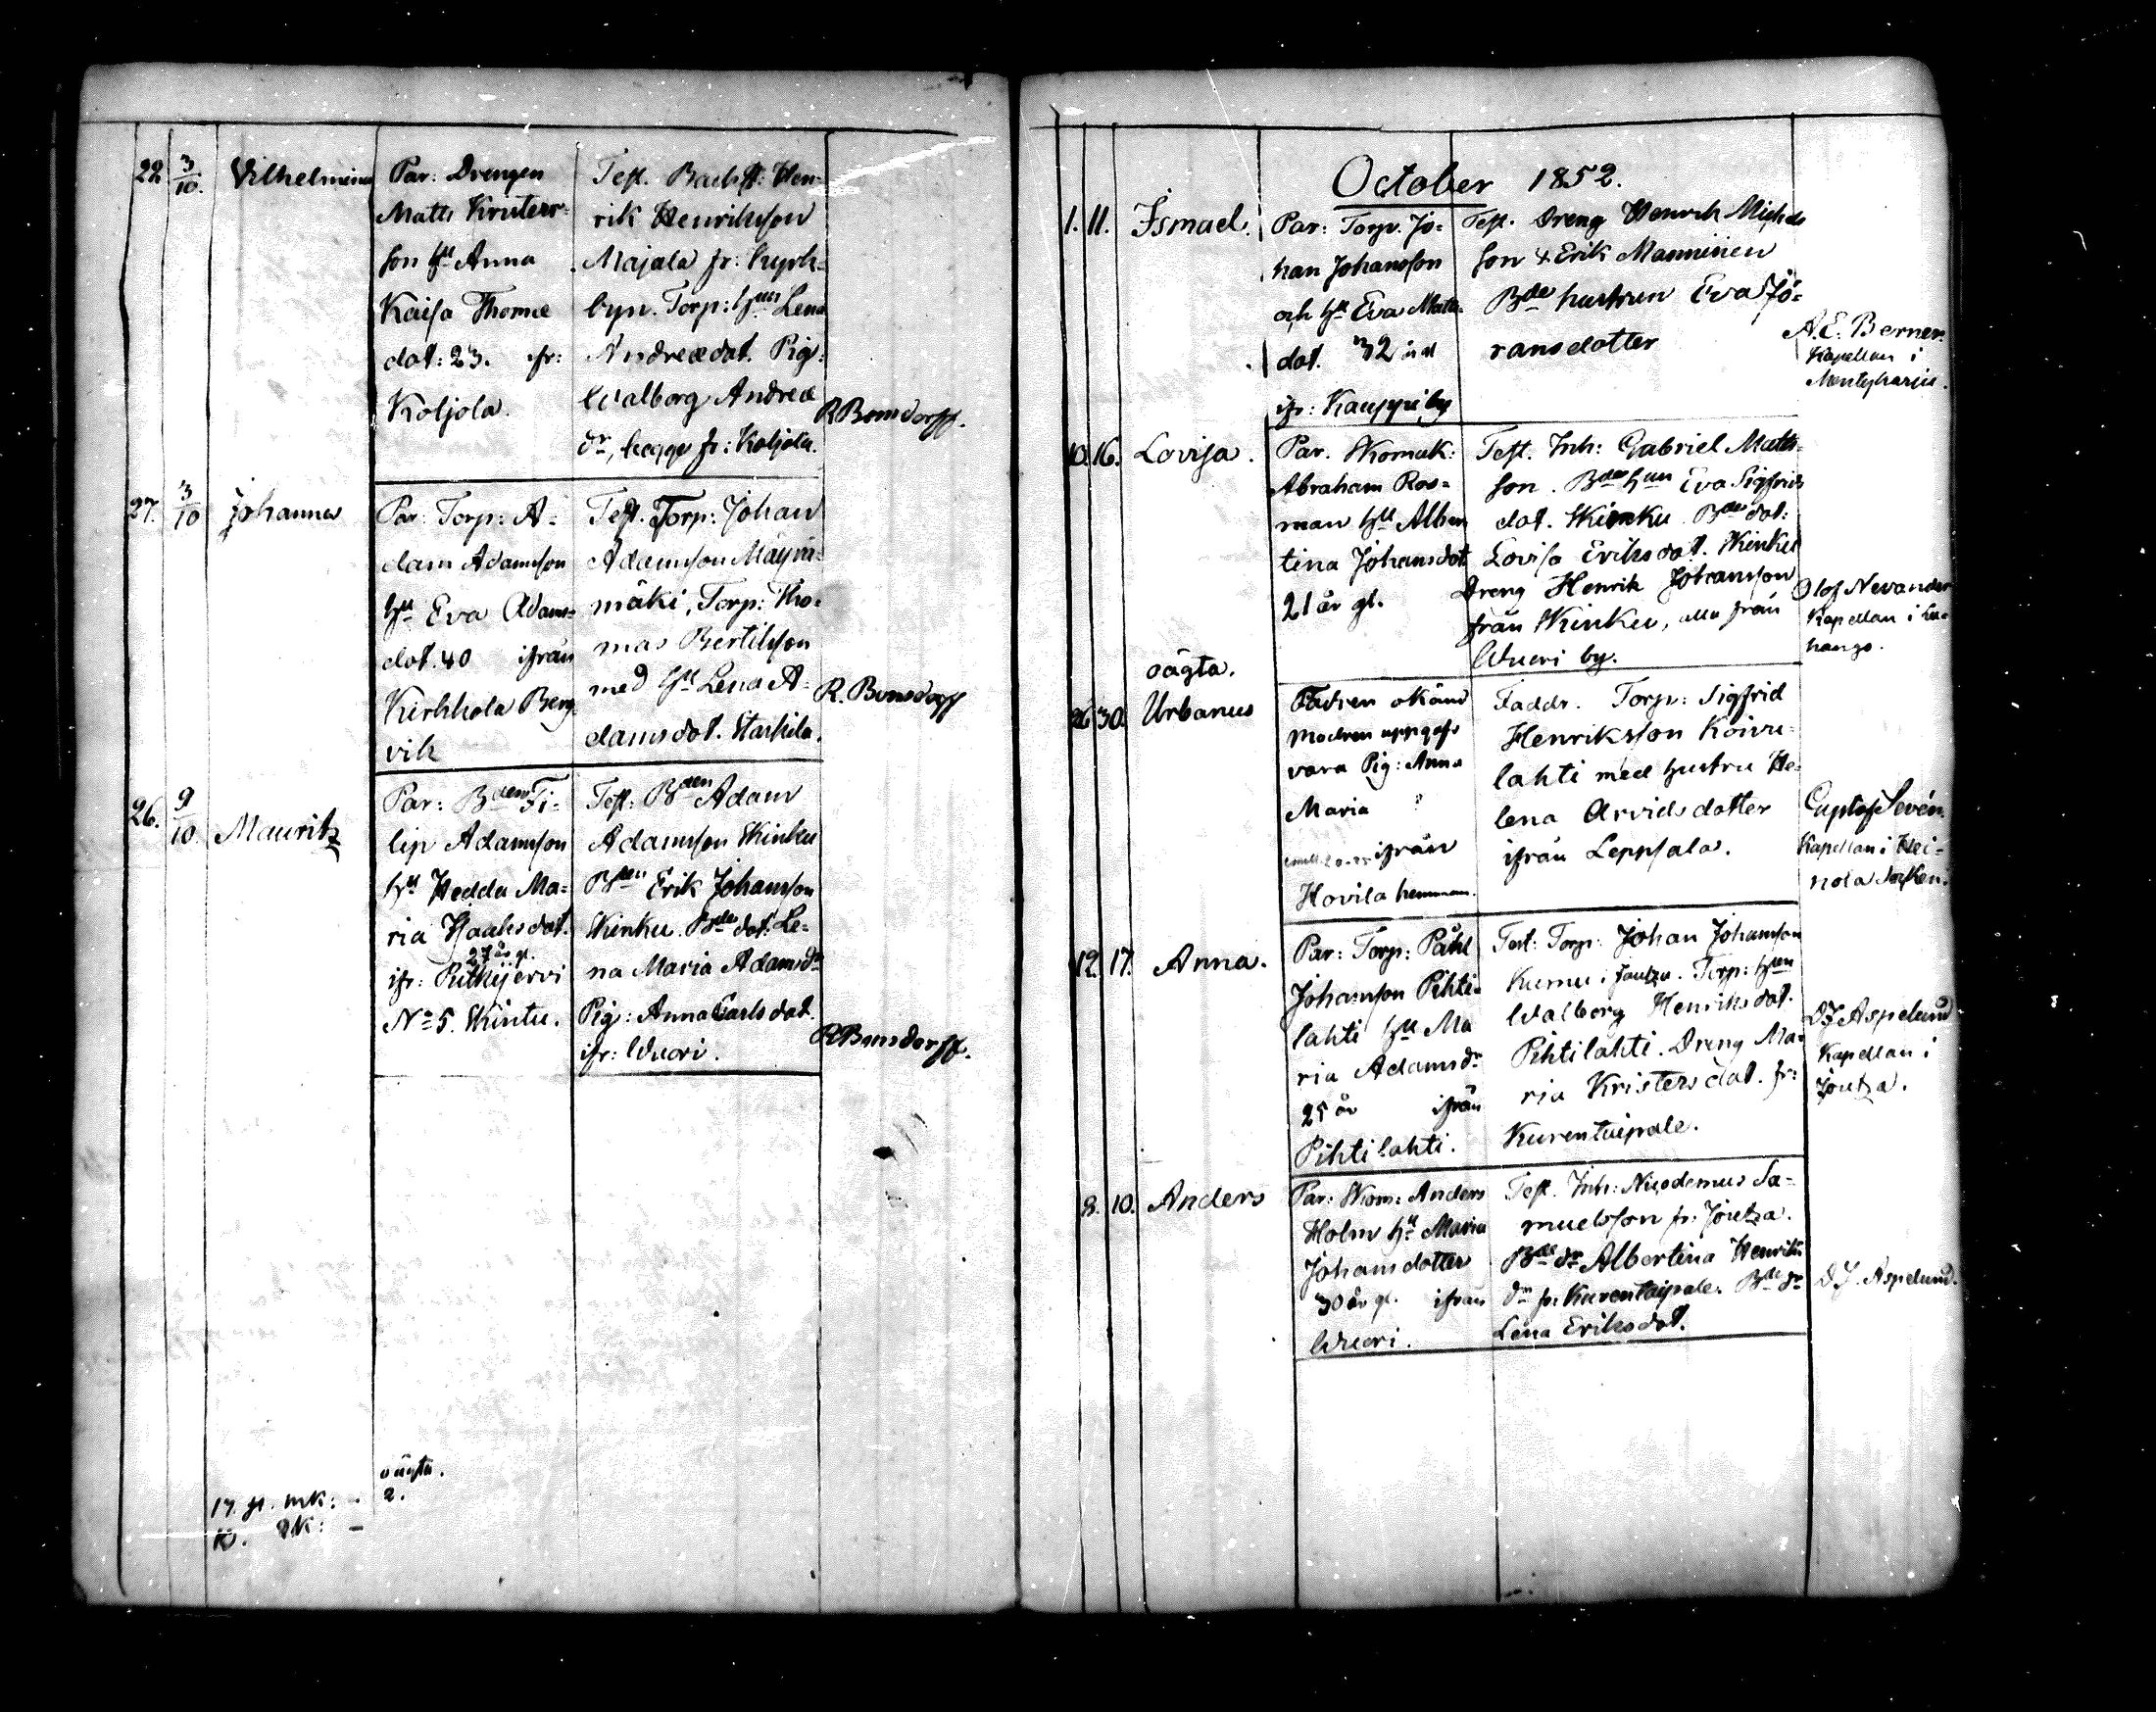 22 3/10. Vilhelmina
Par: Drengen
Matts Krister-
son hu Anna
Kaisa Thomæ
dot: 23. ifr:
Koljola.
Test. Backst: Hen-
rik Henriksson
Majala fr: Kyrk-
byn. Torp: hun Lena
Andreædot. Pig:
Walborg Andreæ
dr, begge fr: Koljola.
R Bonsdorff.
27. 3/10 Johannes
Par: Torp: A-
dam Adamsson
hu Eva Adams-
dot. 40 ifrån
Kirkkola Berg
vik
Test. Torp: Johan
Adamsson Mäyrä-
mäki, Torp: Tho-
mas Bertilsson
med hu Lena A-
damsdot.
R. Bonsdorff
26. 9/10. Mauritz
Par: Bden Fi-
lip Adamsson
hu Hedda Ma-
ria Isaksdot.
27 år gl.
ifr: Pitkejervi
No 5.
Test: Bden Adam
Adamsson Kinku
Bden Erik Johansson
Kinku. Bde dot. Le-
na Maria Adamsdr
Pig: Anna Carlsdot.
ifr: Wuori.
R Bonsdorff.
oägta.
17. gt. mk: - 2.
10. qk: -
October 1852.
1. 11. Ismael.
Par: Torp. Jo-
han Johansson
och hu Eva Matts-
dot. 32 år
ifr: Kauppi by
Test. Dreng Henrik Michels
son & Erik Manninen
Bde hustrun Eva Jö-
ransdotter
A.E. Berner.
Kapellan i
Mentyharju.
10. 16. Lovisa.
Par. Skomak:
Abraham Ros-
man hu Alber
tina Johansdot
21 år gl.
Test. Inh: Gabriel Matts-
son. Bde hun Eva Sigfrids
dot. Kinku. Bde dot:
Lovisa Eriksdot. Kinku
Dreng Henrik Johansson
från Kinku, alla från
Wuori by.
Olof Nevander
Kapellan i Lu-
hango.
oägta.
26 30. Urbanus
Fadren okänd
Modren uppgafs
vara Pig: Anna
Maria ?
ifrån
Hovila hemman.
Faddr. Torp: Sigfrid
Henriksson Koivu-
lahti med hustru He-
lena Arvidsdotter
ifrån Leppsala.
Gustaf Sevón.
Kapellan i Hei-
nola Socken.
12. 17. Anna.
Par: Torp: Påhl
Johansson Pihti-
lahti hu Ma
ria Adamsdr
25 år ifrån
Pihtilahti.
Test: Torp: Johan Johansson
Kumu i Joutza. Torp: hun
Walborg Henriksdot.
Pihtilahti. Dreng Ma-
ria Kristersdot. fr:
Kurentaipale.
D J Aspelund
Kapellan i
Joutza.
8. 10. Anders
Par: Skom: Anders
Holm hu Maria
Johansdotter
30 år gl. ifrån
Wuori.
Test. Inh: Nicodemus Sa-
muelsson fr: Joutza.
Bde dr Albertina Henriks
dr fr: Kurentaipale. Bde dr
Lena Eriksdot.
D J. Aspelund.